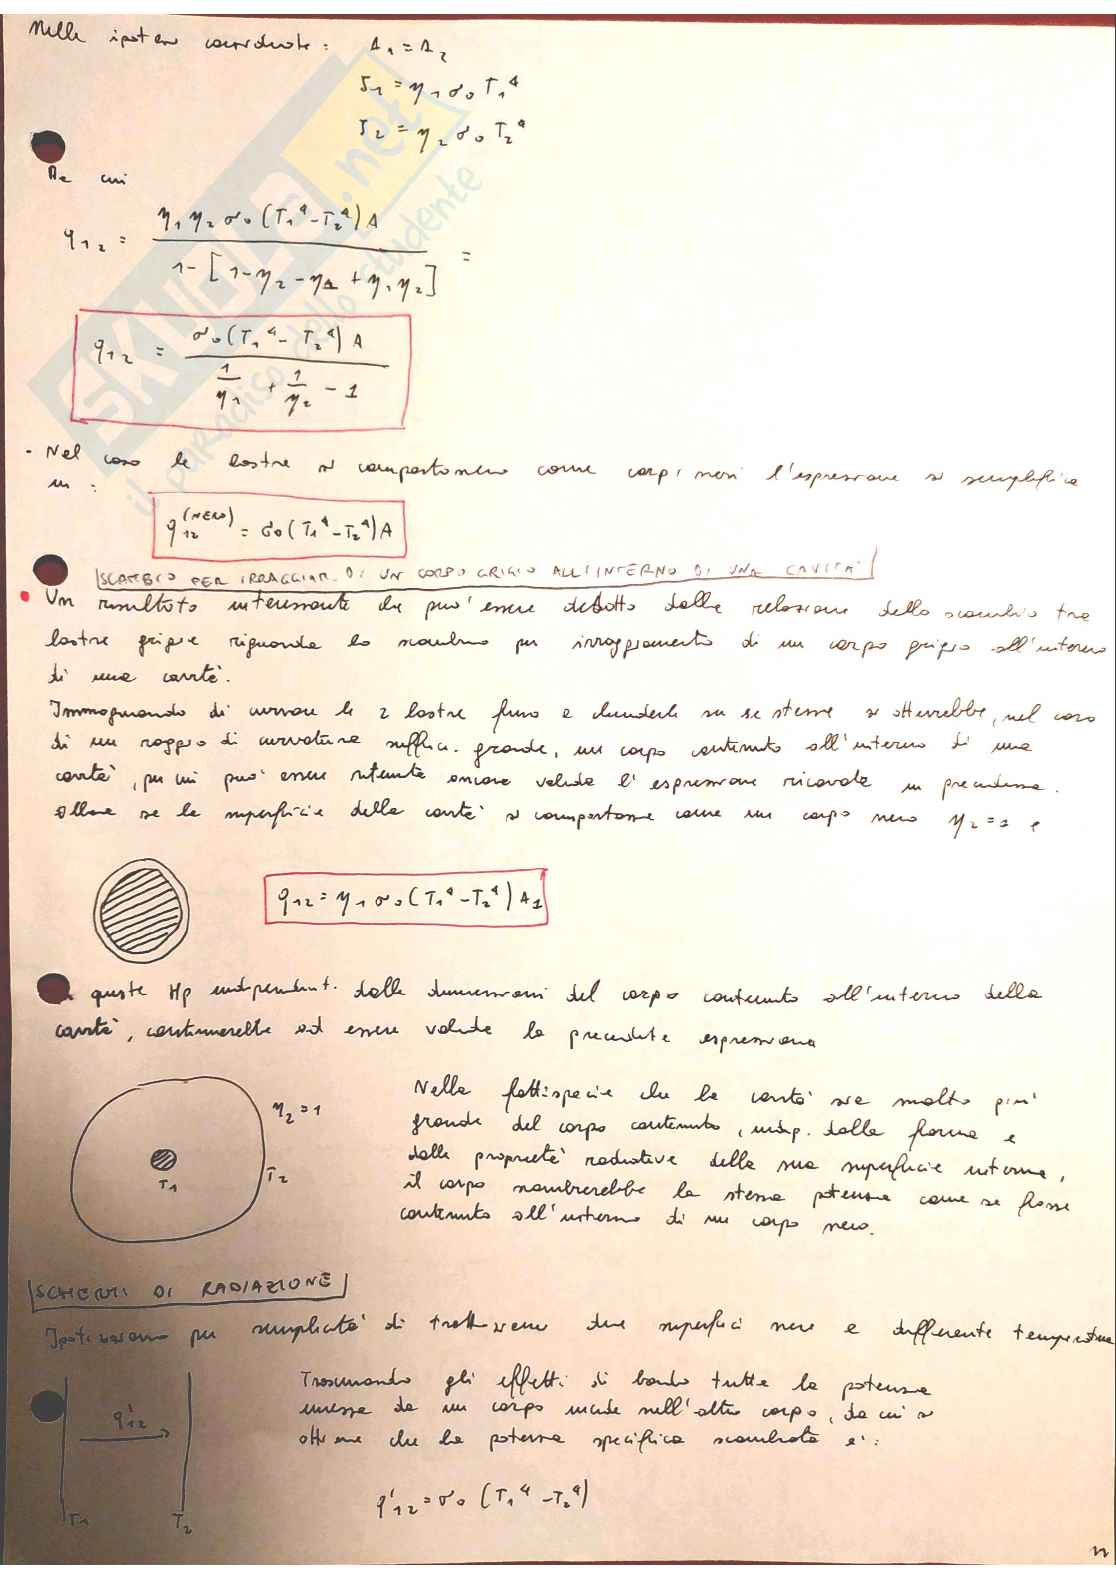 Nelle ipotesi considerate: A₁ = A₂
J₁ = η₁ σ₀ T₁⁴
J₂ = η₂ σ₀ T₂⁴
Da cui
q₁₂ = η₁ η₂ σ₀ (T₁⁴ - T₂⁴) A / 1 - [1 - η₂ - η₁ + η₁ η₂] =
q₁₂ = σ₀ (T₁⁴ - T₂⁴) A / 1/η₁ + 1/η₂ - 1
- Nel caso le lastre si comportassero come corpi neri l'espressione si semplifica
in :
q₁₂^(NERO) = σ₀ (T₁⁴ - T₂⁴) A
SCAMBIO PER IRRAGGIAM. DI UN CORPO GRIGIO ALL'INTERNO DI UNA CAVITA'
• Un risultato interessante che puo' essere dedotto dalla relazione dello scambio tra
lastre grigie riguarda lo scambio per irraggiamento di un corpo grigio all'interno
di una cavità.
Immaginando di curvare le 2 lastre fino a chiuderle su se stesse si otterrebbe, nel caso
di un raggio di curvatura suffic. grande, un corpo contenuto all'interno di una
cavità, per cui puo' essere ritenuta ancora valida l'espressione ricavata in precedenza.
Allora se la superficie della cavità si comportasse come un corpo nero η₂ = 1 e
q₁₂ = η₁ σ₀ (T₁⁴ - T₂⁴) A₁
queste Hp independent. dalle dimensioni del corpo contenuto all'interno della
cavità, continuerebbe ad essere valida la precedente espressione
η₂ = 1
T₁
T₂
Nella fattispecie che la cavità sia molto piu'
grande del corpo contenuto, indip. dalla forma e
dalle proprietà radiative della sua superficie interna,
il corpo scambierebbe la stessa potenza come se fosse
contenuto all'interno di un corpo nero.
SCHERMI DI RADIAZIONE
Ipotizziamo per semplicità di trattazione due superfici nere a differente temperatura
q'₁₂
T₁
T₂
Trascurando gli effetti di bordo tutta la potenza
emessa da un corpo incide sull'altro corpo, da cui si
ottiene che la potenza specifica scambiata e':
q'₁₂ = σ₀ (T₁⁴ - T₂⁴)
SKUOLA.net
il paradiso dello studente